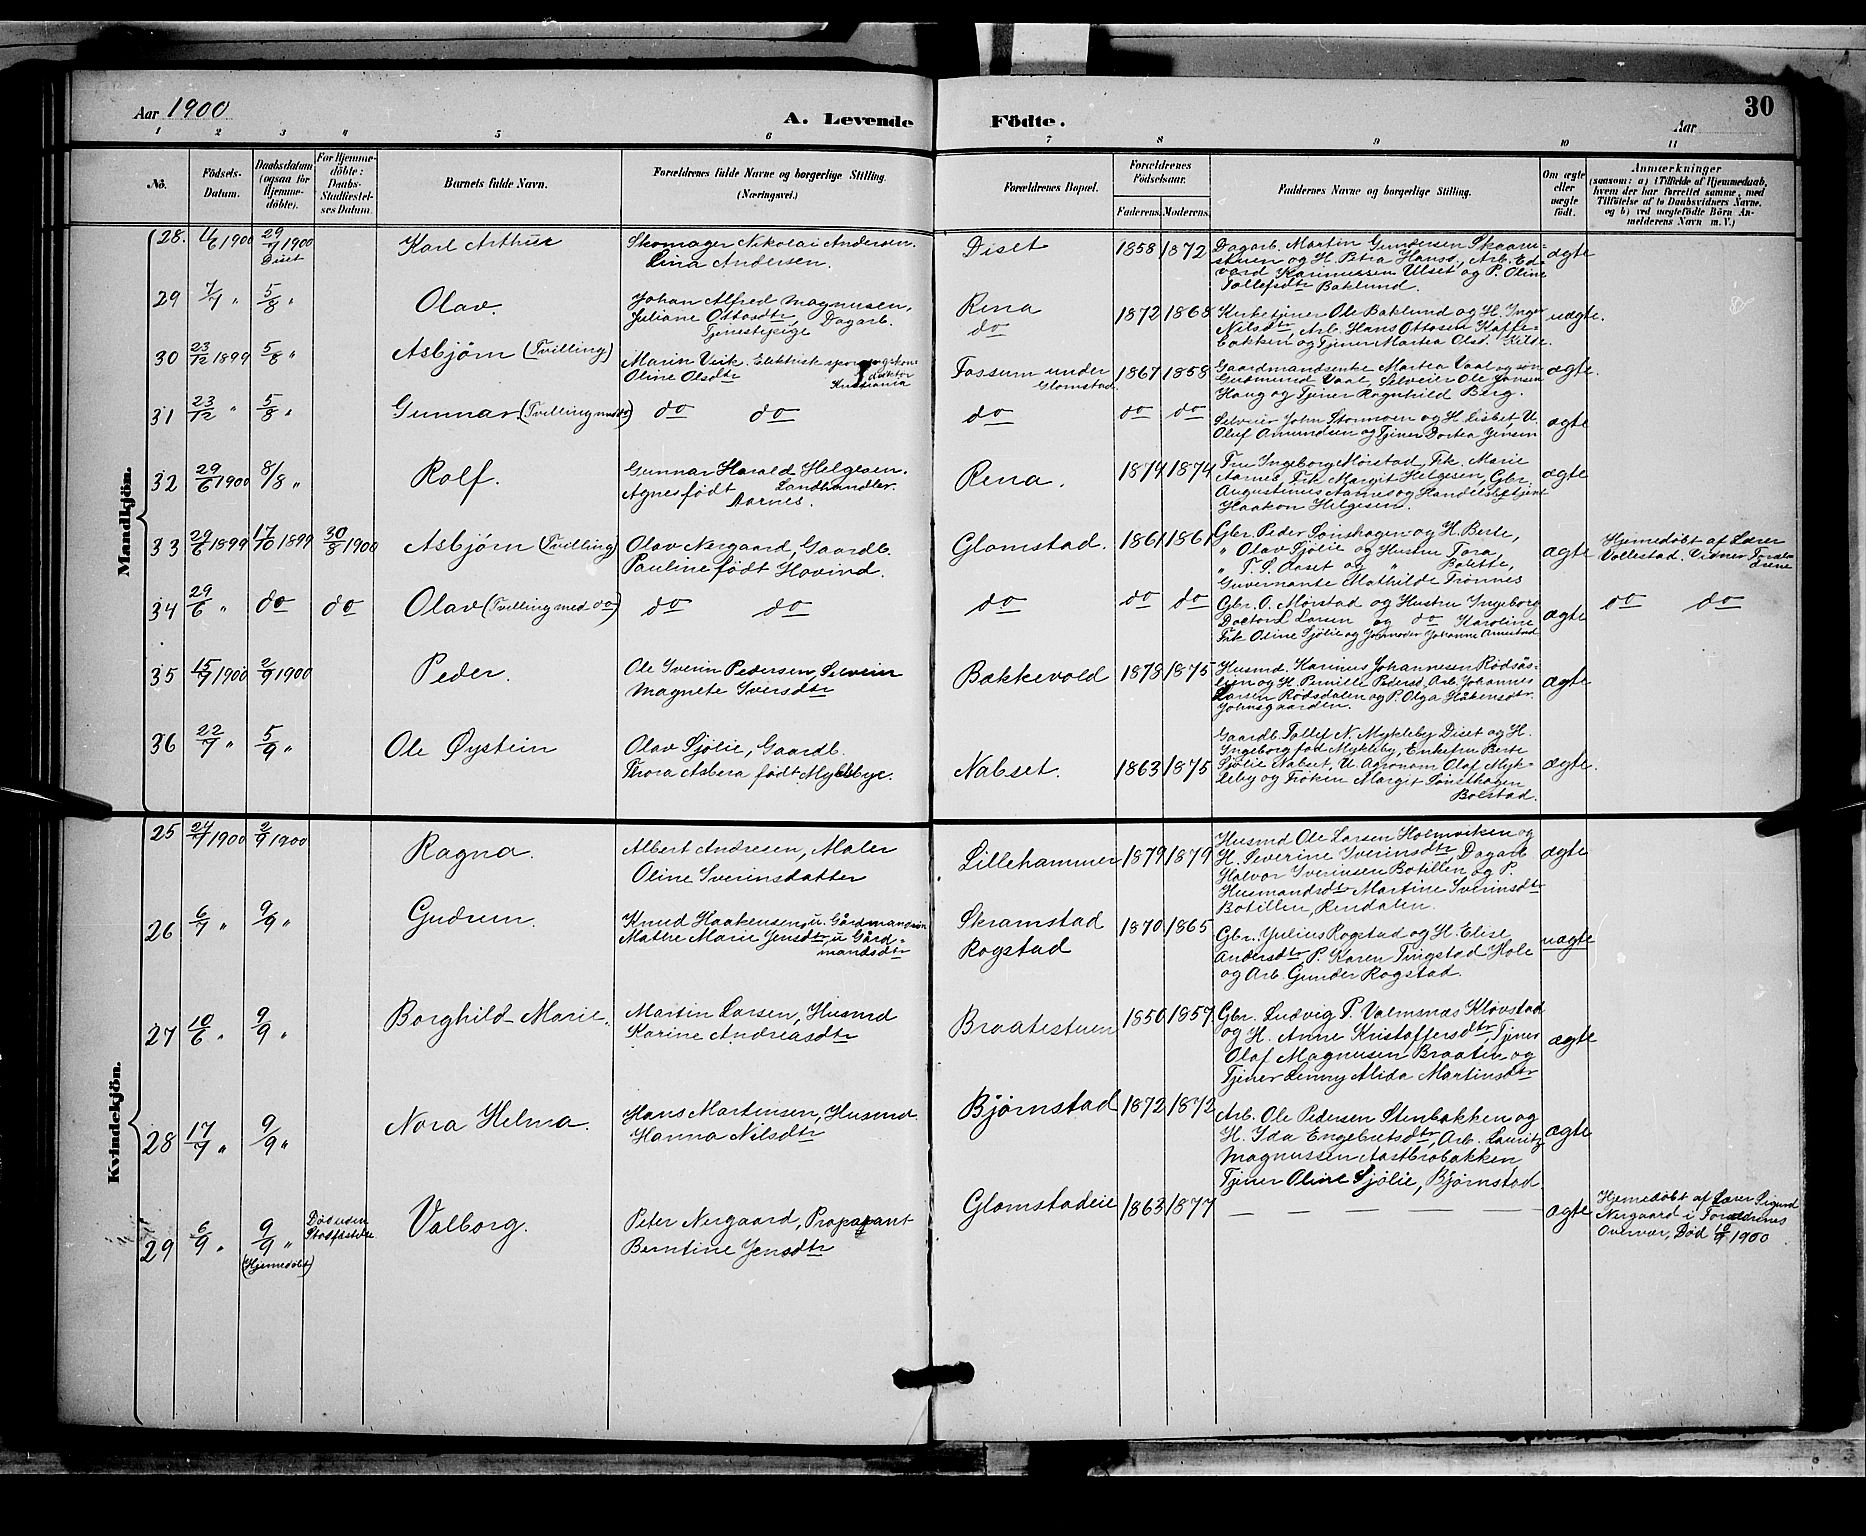 Aar 1900
A. Levende Födte.
Aar
30
1 2 3 4 5 6 7 8 9 10 11
No.
Födsels-Datum.
Daabsdatum (ogsaa for Hjemme-döbte).
For Hjemme-döbte: Daabs-Stadfæstel-ses Datum.
Barnets fulde Navn.
Forældrenes fulde Navne og borgerlige Stilling. (Næringsvei.)
Forældrenes Bopæl.
Forældrenes Födselsaar.
Faderens. Moderens.
Faddernes Navne og borgerlige Stilling.
Om ægte eller uægte födt.
Anmærkninger
(saasom: a) i Tilfælde af Hjemmedaab, hvem der har forrettet samme, med Tilföielse af to Daabsvidners Navne. og b) ved uægtefödte Börn An-melderens Navn m. V.)
Mandkjön.
28. 11/6 1900 29/7 1900 Diset
Karl Arthur
Skomager Nikolai Andersen.
Lina Andersen.
Diset 1858 1872
Dagarb. Martin Gundersen Skaam-
stuen og H. Petra Hansd, Arb. Ed-
vard Rasmussen Ulset og P. Oline
Tollefsdtr Baklund.
ægte
29 7/7 " 5/8 "
Olav.
Johan Alfred Magnusen,
Juliane Ottosdtr, Dagarb.
Tjenestepige
Rena
do
1872 1868
Kirketjener Ole Baklund og H. Inger
Nilsdtr, Arb. Hans Ottosen Kaffe-
bakken og Tjener Martea Olsd. Kilde.
uægte.
30 23/12 1899 5/8 "
Asbjørn (Tvilling)
Marin Veik. Elektrisk
Oline Olsdtr Kristiania
Fossum under
Glomstad.
1867 1858
Gaardmandsenke Martea Vaal og søn
Gudmund Vaal, Selveier Ole Jonsen
Haug og Tjener Ragnhild Berg.
ægte.
31 23/12 " 5/8 "
Gunnar (Tvilling med do)
do do
do
do do
Selveier John Stormoen og H. Lisbet, U.
Oluf Amundsen og Tjener Dortea Jensen
ægte
32 29/6 1900 8/8 "
Rolf.
Gunnar Harald Helgesen.
Agnes født Landhandler.
Aarnes.
Rena. 1879 1874
Fru Ingeborg Mørstad, Frk. Marie
Aarnes, Frk. Margit Helgesen, Gbr.
Augustinus Aarnes og Handelsbetjent
Haakon Helgesen.
ægte
33 29/6 1899 17/10 1899 30/8 1900
Asbjørn (Tvilling)
Olav Nergaard, Gaardb.
Pauline født Hovind.
Glomstad. 1861 1861
Gbr. Peder Sønshagen og H. Berte,
" Olav Sjølie og Hustru Tora,
" T. S. Aaset og " Bolette,
Guvernante Mathilde Trønnes
ægte
Hjemedøbt af Lærer
Vollestad. Vidner Foræl-
drene
34 29/6 " do do
Olav (Tvilling med do)
do do
do
do do
Gbr. O. Mørstad og Hustru Ingeborg
Doctor L Larsen og do Karoline
Frk Oline Sjølie og Jordmoder Johanne
ægte
do do
35 15/7 1900 2/9 1900
Peder.
Ole Iverin Pedersen, Selveier
Magnete Iversdtr
Bakkevold 1878 1875
Husmd. Karinus Johannesen Rødsås-
lien og H. Pernille Pedersd, Arb. Johannes
Larsen Rødsdalen og P. Olga Håkensdtr.
Johnsgaarden.
ægte
36 22/7 " 5/9 "
Ole Øystein
Olav Sjølie, Gaardb.
Thora Asbera født Myklebye.
Nabset. 1863 1875
Gaardb. Tollef N. Mykleby Diset og H.
Ingeborg fød Mykleby, Enkefru Berte
Sjølie Nabset, U. Agronom Olaf Myk-
leby og Frøken Margit Sønsthagen
Bolstad.
ægte.
Kvindekjön.
25 24/7 1900 2/9 1900
Ragna.
Albert Andresen, Maler
Oline Sverinsdatter
Lillehammer 1879 1879
Husmd Ole Larsen Holmviken og
H. Severine Iverinsdtr, Dagarb
Halvor Iverinsen Botillen og P.
Husmandsdtr Martine Sverinsdtr
Botillen, Rendalen.
ægte
26 6/7 " 9/9 "
Gudrun.
Knud Haakensen, u. Gårdmandsøn
Mathe Marie Jensdtr, u Gård-
mandsdtr
Skramstad
Rogstad
1870 1865
Gbr. Julius Rogstad og H. Elise
Andersdtr P. Karen Tingstad Hole
og Arb. Gunder Rogstad.
uægte
27 10/6 " 9/9 "
Borghild Marie.
Martin Larsen, Husmd
Karine Andreasdtr
Braatestuen 1850 1857
Gbr. Ludvig P. Valmsnæs Kløvstad
og H. Anne Kristoffersdtr, Tjener
Olaf Magnusen Braaten og
Tjener Lenny Alida Martinsdtr
ægte
28 17/7 " 9/9 "
Nora Helma.
Hans Martinsen, Husmd.
Hanna Nilsdtr
Bjørnstad 1872 1872
Arb. Ole Pedersen Stenbakken og
H. Ida Engebretsdtr, Arb. Lauritz
Magnussen Aastbrobakken
Tjener Oline Sjølie, Bjørnstad.
ægte
29 6/9 " 9/9 " (Hjemedøbt)
Død uden
Stadfæstelse
Valborg.
Peter Nergaard, Propapant
Berntine Jensdtr
Glomstadeie 1863 1877
ægte
Hjemedøbt af Lærer Sigurd
Nergaard i Forældrenes
Overvær, Død 1900